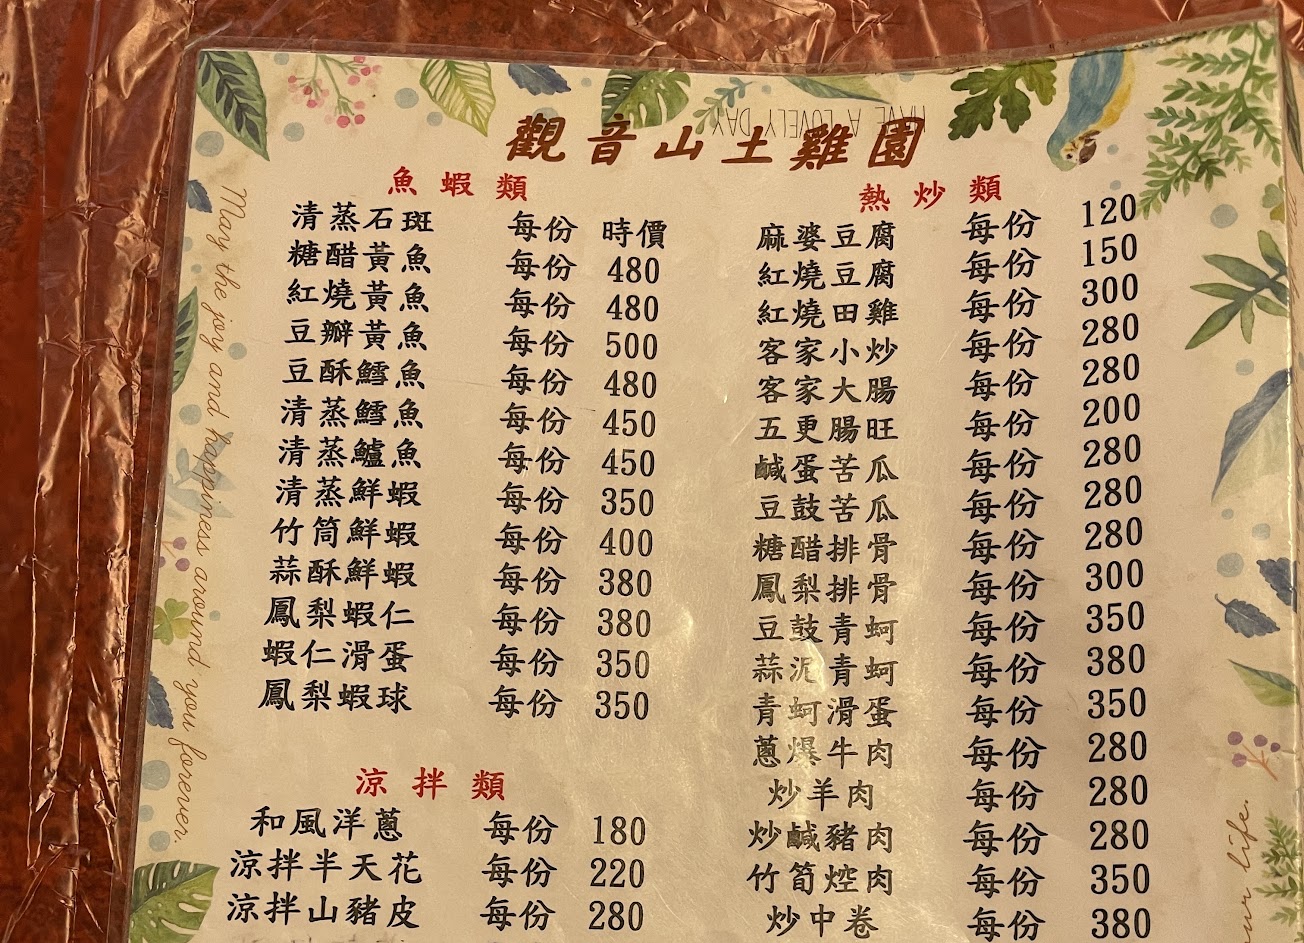 HAVE A LOVELY DAY
觀音山土雞園
魚蝦類
清蒸石斑 每份 時價
糖醋黃魚 每份 480
紅燒黃魚 每份 480
豆瓣黃魚 每份 500
豆酥鱈魚 每份 480
清蒸鱈魚 每份 450
清蒸鱸魚 每份 450
清蒸鮮蝦 每份 350
竹筒鮮蝦 每份 400
蒜酥鮮蝦 每份 380
鳳梨蝦仁 每份 380
蝦仁滑蛋 每份 350
鳳梨蝦球 每份 350
涼拌類
和風洋蔥 每份 180
涼拌半天花 每份 220
涼拌山豬皮 每份 280
熱炒類
麻婆豆腐 每份 120
紅燒豆腐 每份 150
紅燒田雞 每份 300
客家小炒 每份 280
客家大腸 每份 280
五更腸旺 每份 200
鹹蛋苦瓜 每份 280
豆鼓苦瓜 每份 280
糖醋排骨 每份 280
鳳梨排骨 每份 300
豆鼓青蚵 每份 350
蒜泥青蚵 每份 380
青蚵滑蛋 每份 350
蔥爆牛肉 每份 280
炒羊肉 每份 280
炒鹹豬肉 每份 280
竹筍焢肉 每份 350
炒中卷 每份 380
May the joy and happiness around you forever.
life.